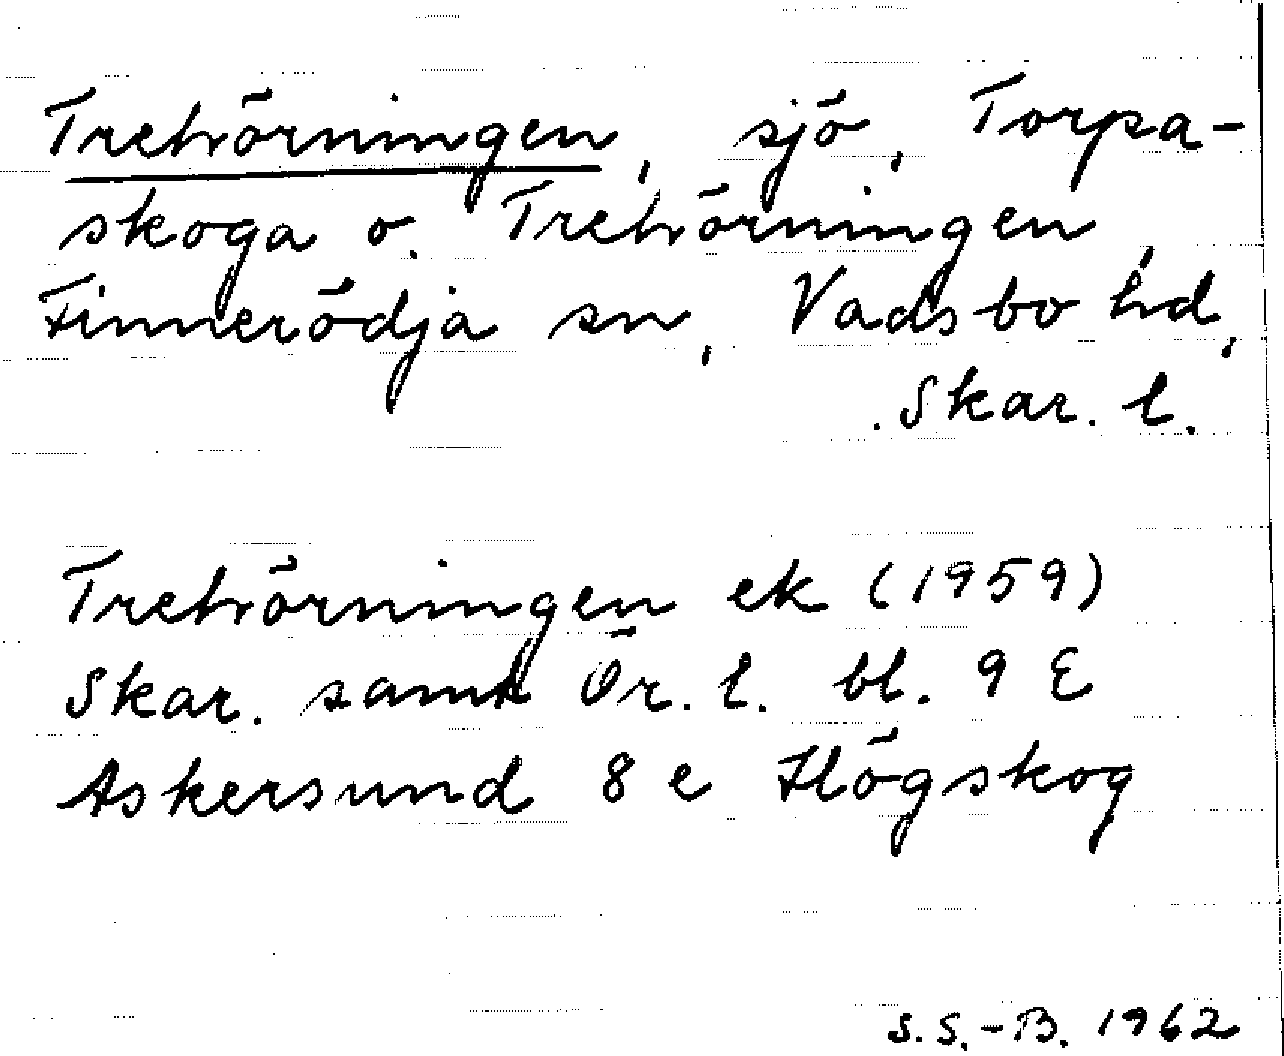 Trehörningen, sjö, Torpa-
skoga o. Trehörningen,
Finnerödja sn, Vadsbo hd,
Skar. l.
Trehörningen ek (1959)
Skar. samt Ör. l. bl. 9 E
Askersund 8 e Högskog
S. S.-B. 1962